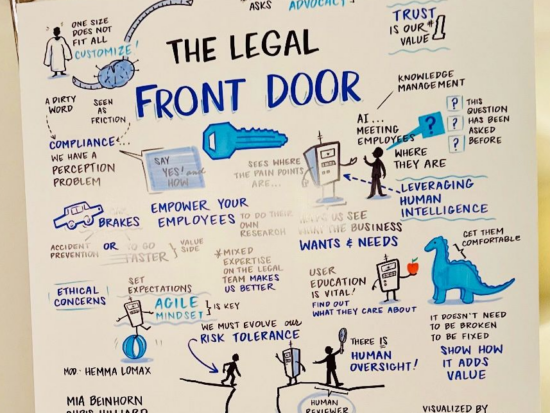 ASKS
ADVOCACY!
TRUST
IS OUR #1
VALUE
ONE SIZE
DOES NOT
FIT ALL
CUSTOMIZE!
THE LEGAL
FRONT DOOR
KNOWLEDGE
MANAGEMENT
A DIRTY
WORD
SEEN
AS
FRICTION
COMPLIANCE...
WE HAVE A
PERCEPTION
PROBLEM
SAY
YES! and
HOW
SEES WHERE
THE PAIN POINTS
ARE...
AI...
MEETING
EMPLOYEES
WHERE
THEY ARE
?
?
?
?
THIS
QUESTION
HAS BEEN
ASKED
BEFORE
LEVERAGING
HUMAN
INTELLIGENCE
BRAKES
ACCIDENT
PREVENTION
OR
TO GO
FASTER
VALUE
SIDE
EMPOWER YOUR
EMPLOYEES
TO DO THEIR
OWN
RESEARCH
US SEE
WHAT THE BUSINESS
WANTS & NEEDS
GET THEM
COMFORTABLE
*MIXED
EXPERTISE
ON THE LEGAL
TEAM MAKES
US BETTER
USER
EDUCATION
IS VITAL!
FIND OUT
WHAT THEY CARE ABOUT
ETHICAL
CONCERNS
SET
EXPECTATIONS
AGILE
MINDSET
IS KEY
IT DOESN'T NEED
TO BE BROKEN
TO BE FIXED
SHOW HOW
IT ADDS
VALUE
WE MUST EVOLVE our
RISK TOLERANCE
THERE IS
HUMAN
OVERSIGHT!
MOD · HEMMA LOMAX
MIA BEINHORN
HUMAN
REVIEWER
VISUALIZED BY